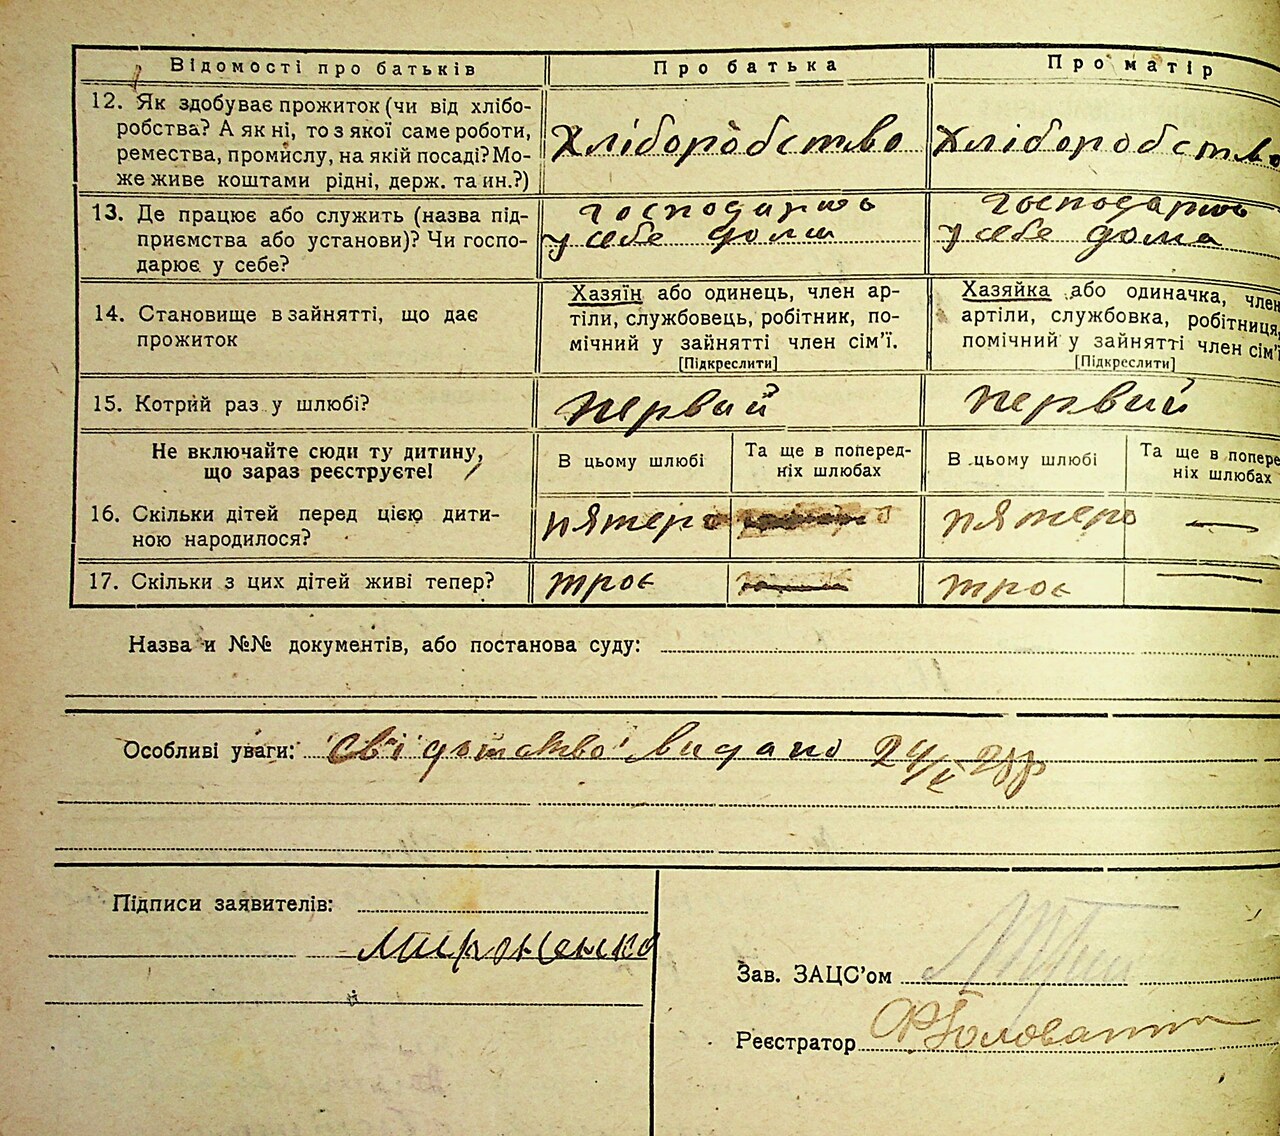 Відомості про батьків
Про батька
Про матір
12. Як здобуває прожиток (чи від хлібо-
робства? А як ні, то з якої саме роботи,
ремества, промислу, на якій посаді? Мо-
же живе коштами рідні, держ. та ин.?)
Хліборобство
Хліборобство
13. Де працює або служить (назва під-
приємства або установи)? Чи госпо-
дарює у себе?
господарить
у себе дома
господарить
у себе дома
14. Становище в зайнятті, що дає
прожиток
Хазяїн або одинець, член ар-
тіли, службовець, робітник, по-
мічний у зайнятті член сім'ї.
[Підкреслити]
Хазяйка або одиначка, член
артіли, службовка, робітниця,
помічний у зайнятті член сім'ї
[Підкреслити]
15. Котрий раз у шлюбі?
первий
первий
Не включайте сюди ту дитину,
що зараз реєструєте!
В цьому шлюбі
Та ще в поперед-
ніх шлюбах
В цьому шлюбі
Та ще в попере
ніх шлюбах
16. Скільки дітей перед цією дити-
ною народилося?
пятеро
пятеро
—
17. Скільки з цих дітей живі тепер?
троє
троє
—
Назва и №№ документів, або постанова суду:
Особливі уваги: Свідоцтво видано
Підписи заявителів:
Мироненко
Зав. ЗАЦС'ом
Реєстратор